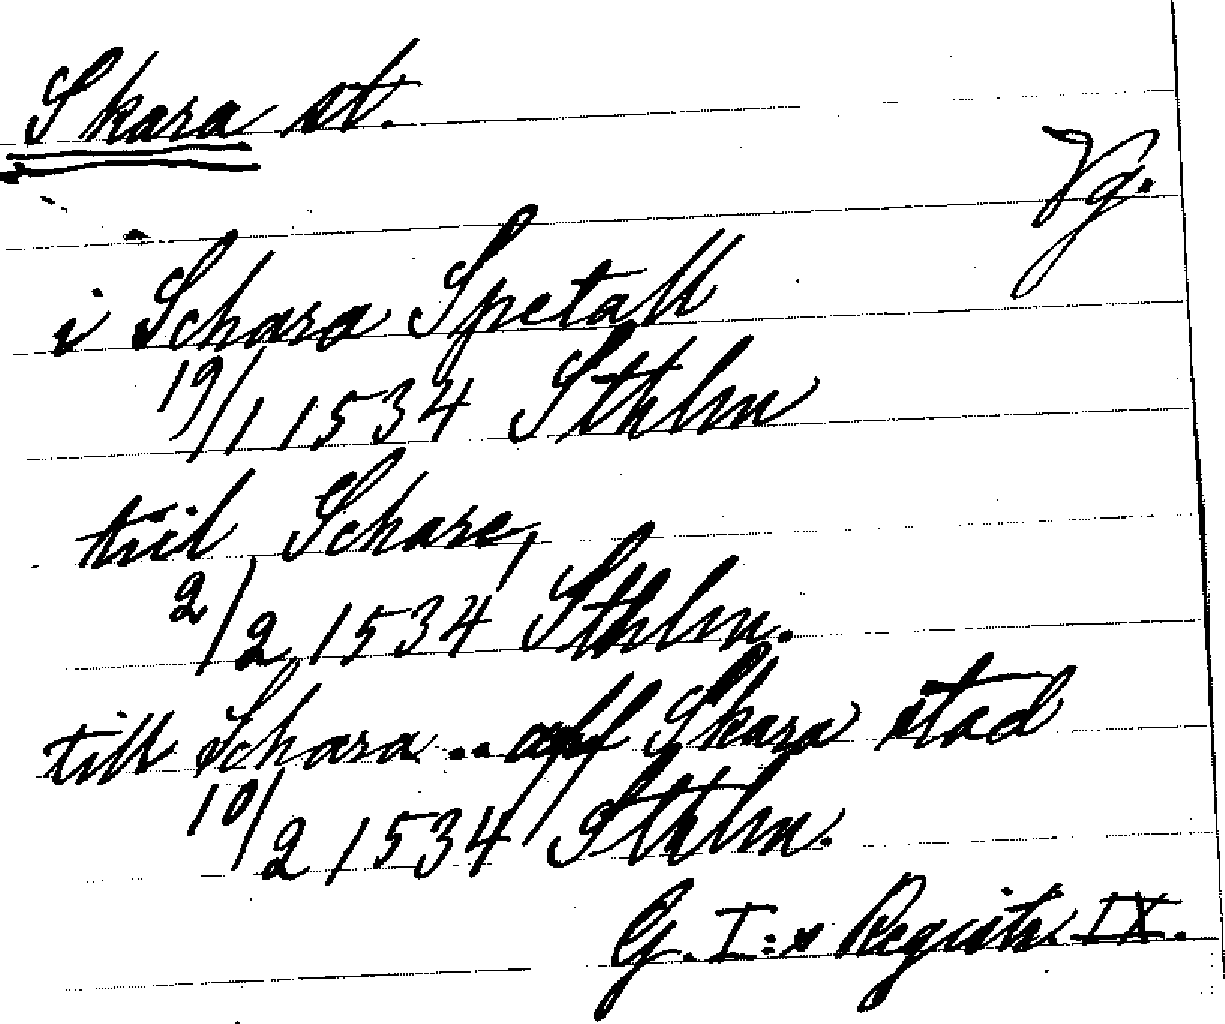 Skara st.
Vg.
i Schara Spetall
19/1 1534 Sthlm
tiil Schare,
2/2 1534 Sthlm.
till Schara .. aff Skara stad
10/2 1534 Sthlm.
G. I:s Registr. IX.